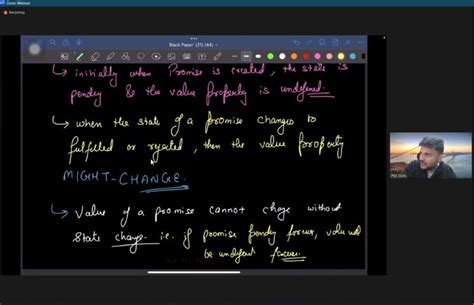 Zoom Webinar
Recording
Black Paper (21) (44)
↳ initially when Promise is created, the state is
pendey & the value Property is undefined.
↳ when the state of a promise changes to
fulfilled or rejected, then the value property
MIGHT-CHANGE.
↳ Value of a promise cannot chage without
state change. i.e. if promise pendy forever, value will
be undefined forever